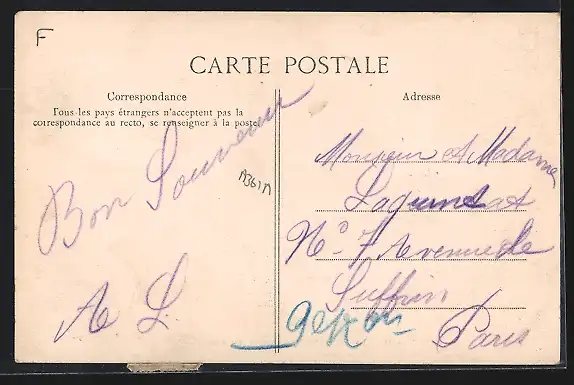 F
CARTE POSTALE
Correspondance
Tous les pays étrangers n'acceptent pas la
correspondance au recto, se renseigner à la poste.
Bon Souvenir
A. L.
A361A
Adresse
Monsieur et Madame
No 7 Avenue de
Suffren
Paris